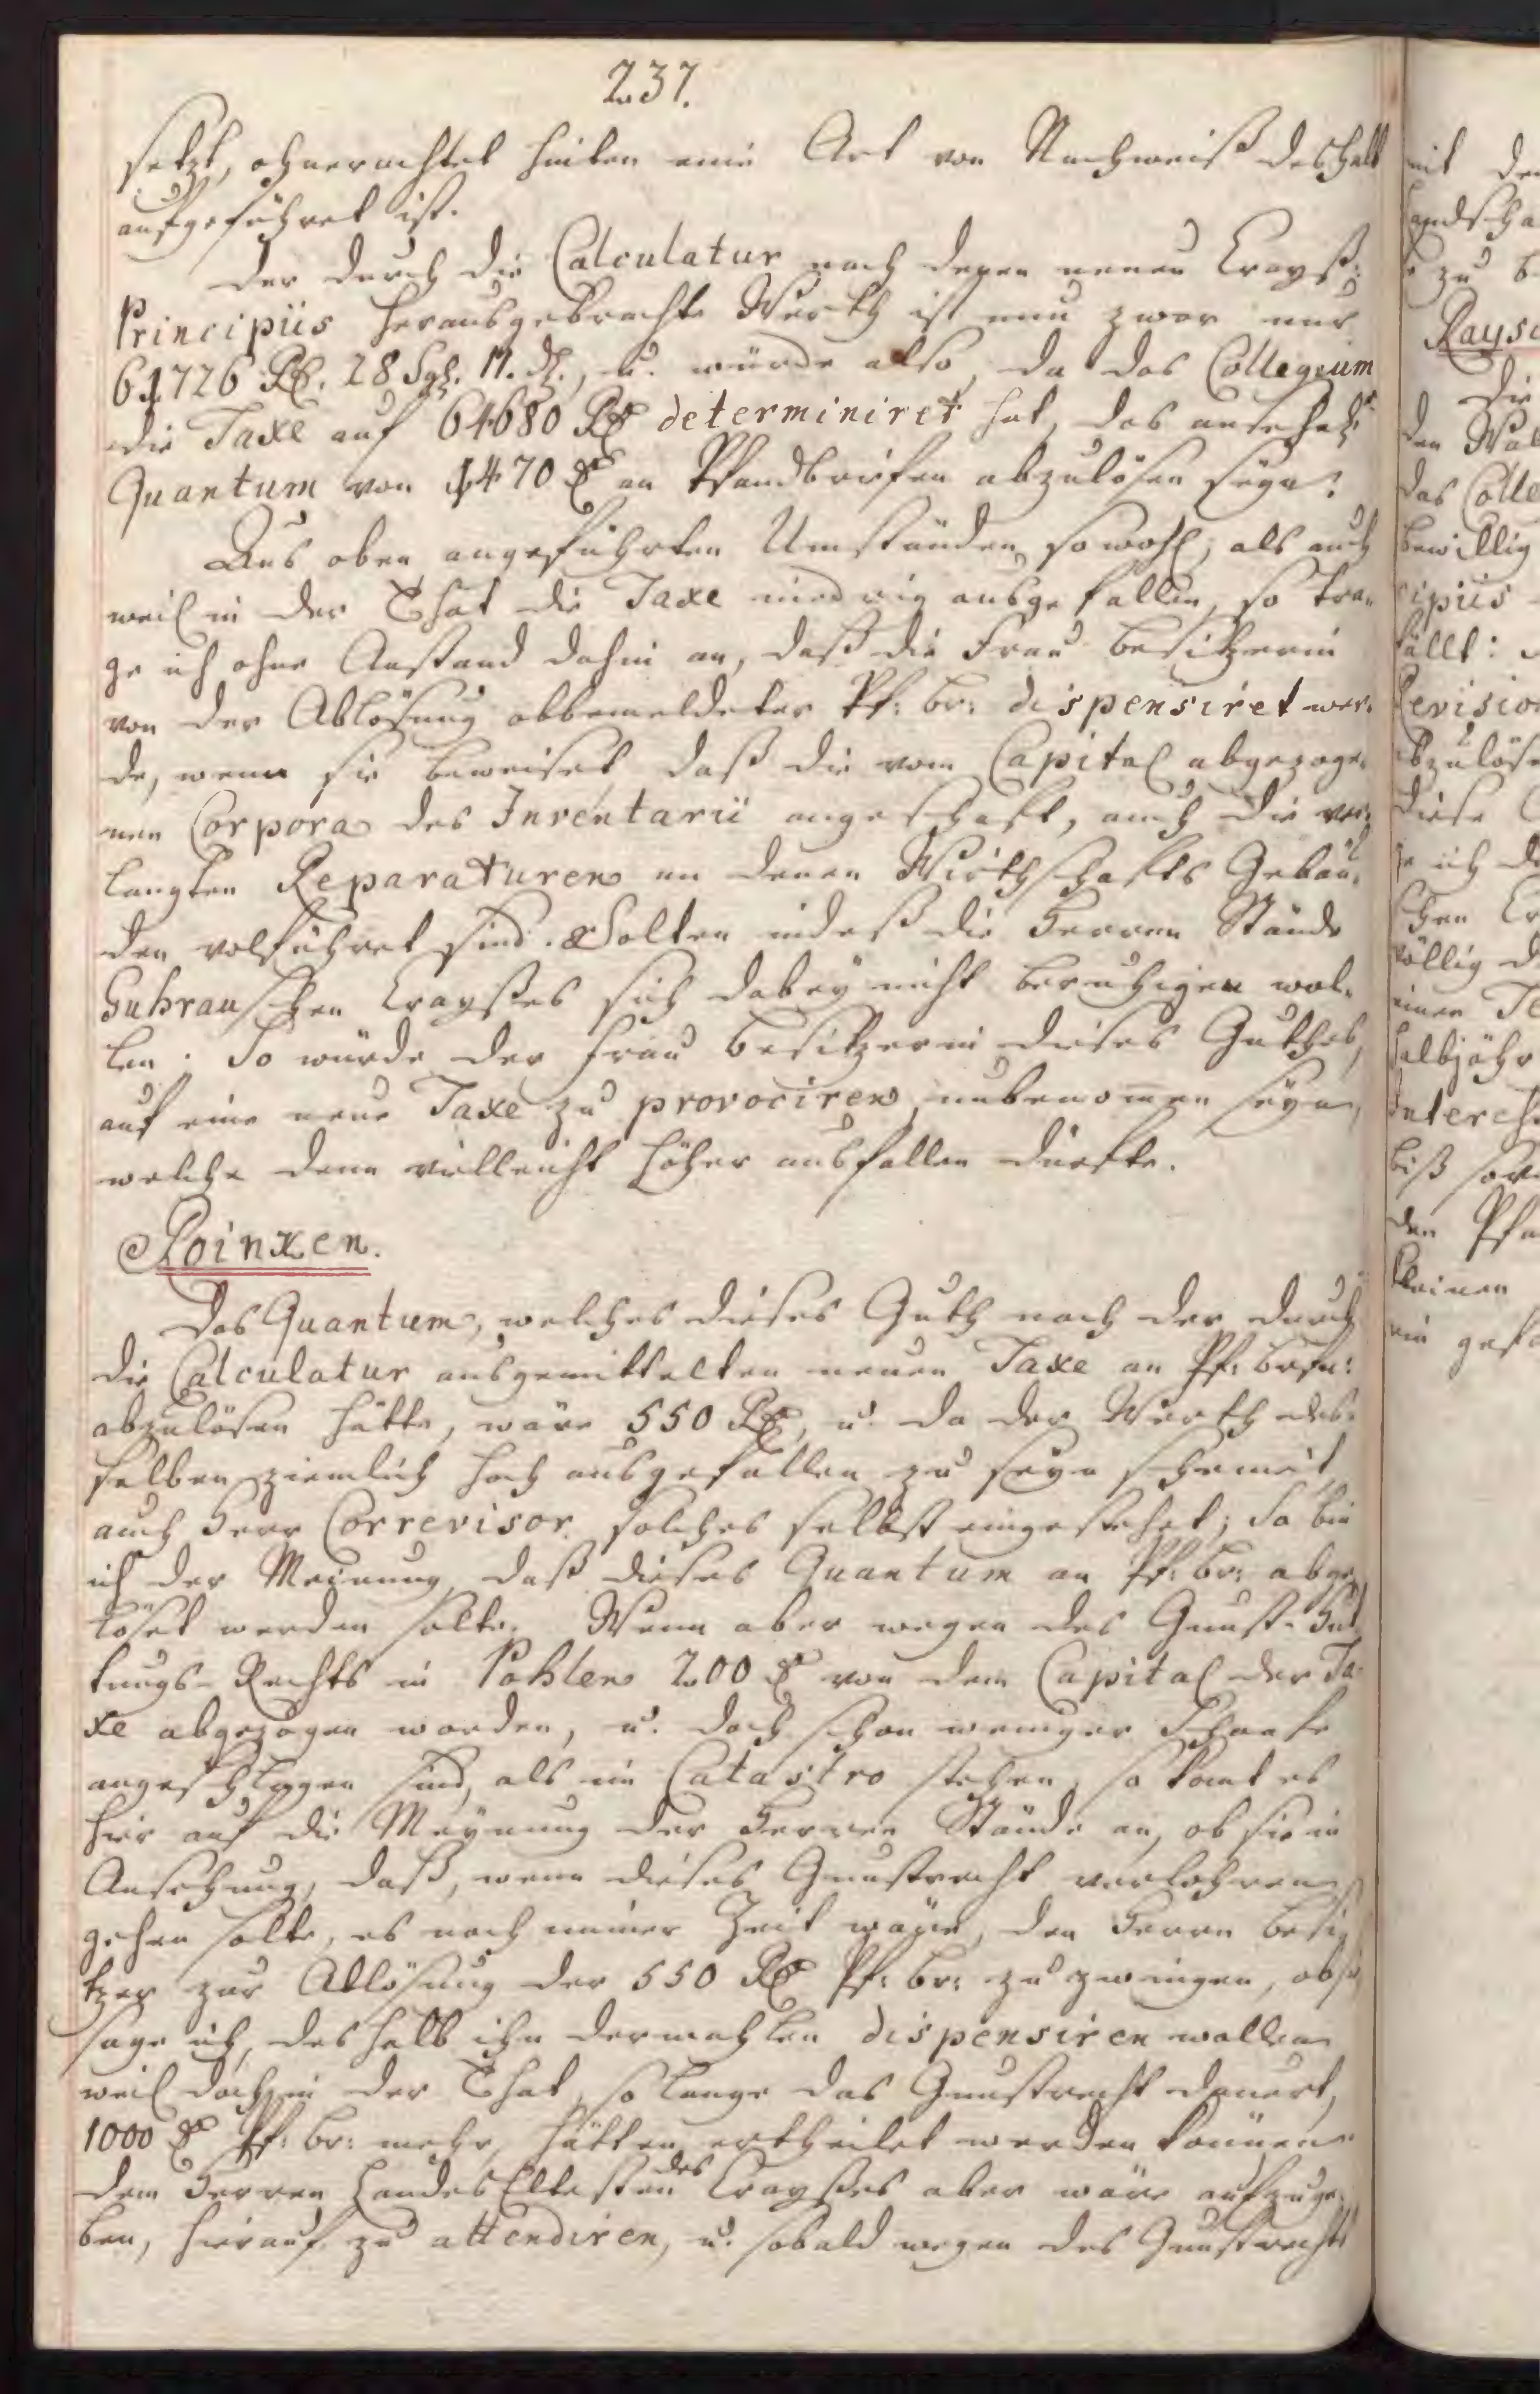 237.
setzt, ohnerachtet hinten eine Art von Nachweiß deshalb
aufgeführet ist.
Der durch die Calculatur nach denen neuen Crayß-
Principiis herausgebrachte Werth ist nun zwar nur
61726 Rl. 28 Sgl. 11. dl., u. würde also, da das Collegium
die Taxe auf 64680 Rl determiniret hat, das
Quantum von 1470 rl an Pfandbriefen abzulösen seyn.
Aus oben angeführten Umständen sowohl, als auch
weil in der That die Taxe niedrig ausgefallen, so tra-
ge ich ohne Anstand dahin an, daß die Frau Besitzerin
von der Ablösung obbemeldeter Pf: br: dispensiret wer-
de, wenn sie beweiset daß die vom Capital abgezoge-
nen Corpora des Inventarii angeschaft, auch die ver-
langten Reparaturen an denen Wirthschafts Gebäu-
den volführet sind. Solten indeß die Herren Stände
Guhrauschen Crayßes sich dabey nicht beruhigen wol-
len: So würde der Frau Besitzerin dieses Guthes,
auf eine neue Taxe zu provociren, unbenommen seyn,
welche denn vielleicht höher ausfallen dürfte.
Poinxen.
Das Quantum, welches dieses Guth nach der durch
die Calculatur ausgemittelten neuen Taxe an Pf: brfn:
abzulösen hätte, wäre 550 Rl, u. da der Werth des-
selben ziemlich hoch ausgefallen zu seyn scheinet,
auch Herr Correvisor solches selbst eingestehet; So bin
ich der Meinung, daß dieses Quantum an Pf: br: abge-
löset werden solte. Wenn aber wegen des Gunst-Hut-
tungs-Rechts in Pohlen 200 rl von dem Capital der Ta-
xe abgezogen worden, u. doch schon weniger Schaafe
angeschlagen sind, als im Catastro stehen, so komt es
hier auf die Meynung der Herren Stände an, ob sie in
Ansehung, daß, wenn dieses Gunstrecht verlohren
gehen solte, es noch immer Zeit wäre, den Herrn Besi-
tzer zur Ablösung der 550 Rl Pf: br: zu zwingen, ob sie,
sage ich, deshalb ihn dermahlen dispensiren wollen
weil doch in der That, so lange das Gunstrecht dauert,
1000 rl Pf: br: mehr, hätten ertheilet werden können.
Dem Herren LandesEltesten des Crayßes aber wäre aufzuge-
ben, hierauf zu attendiren, u. sobald wegen des Gunstrechts